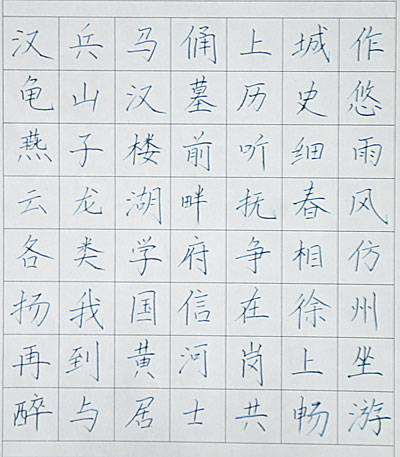 汉兵马俑上城作
龟山汉墓历史悠
燕子楼前听细雨
云龙湖畔抚春风
各类学府争相仿
扬我国信在徐州
再到黄河岗上坐
醉与居士共畅游